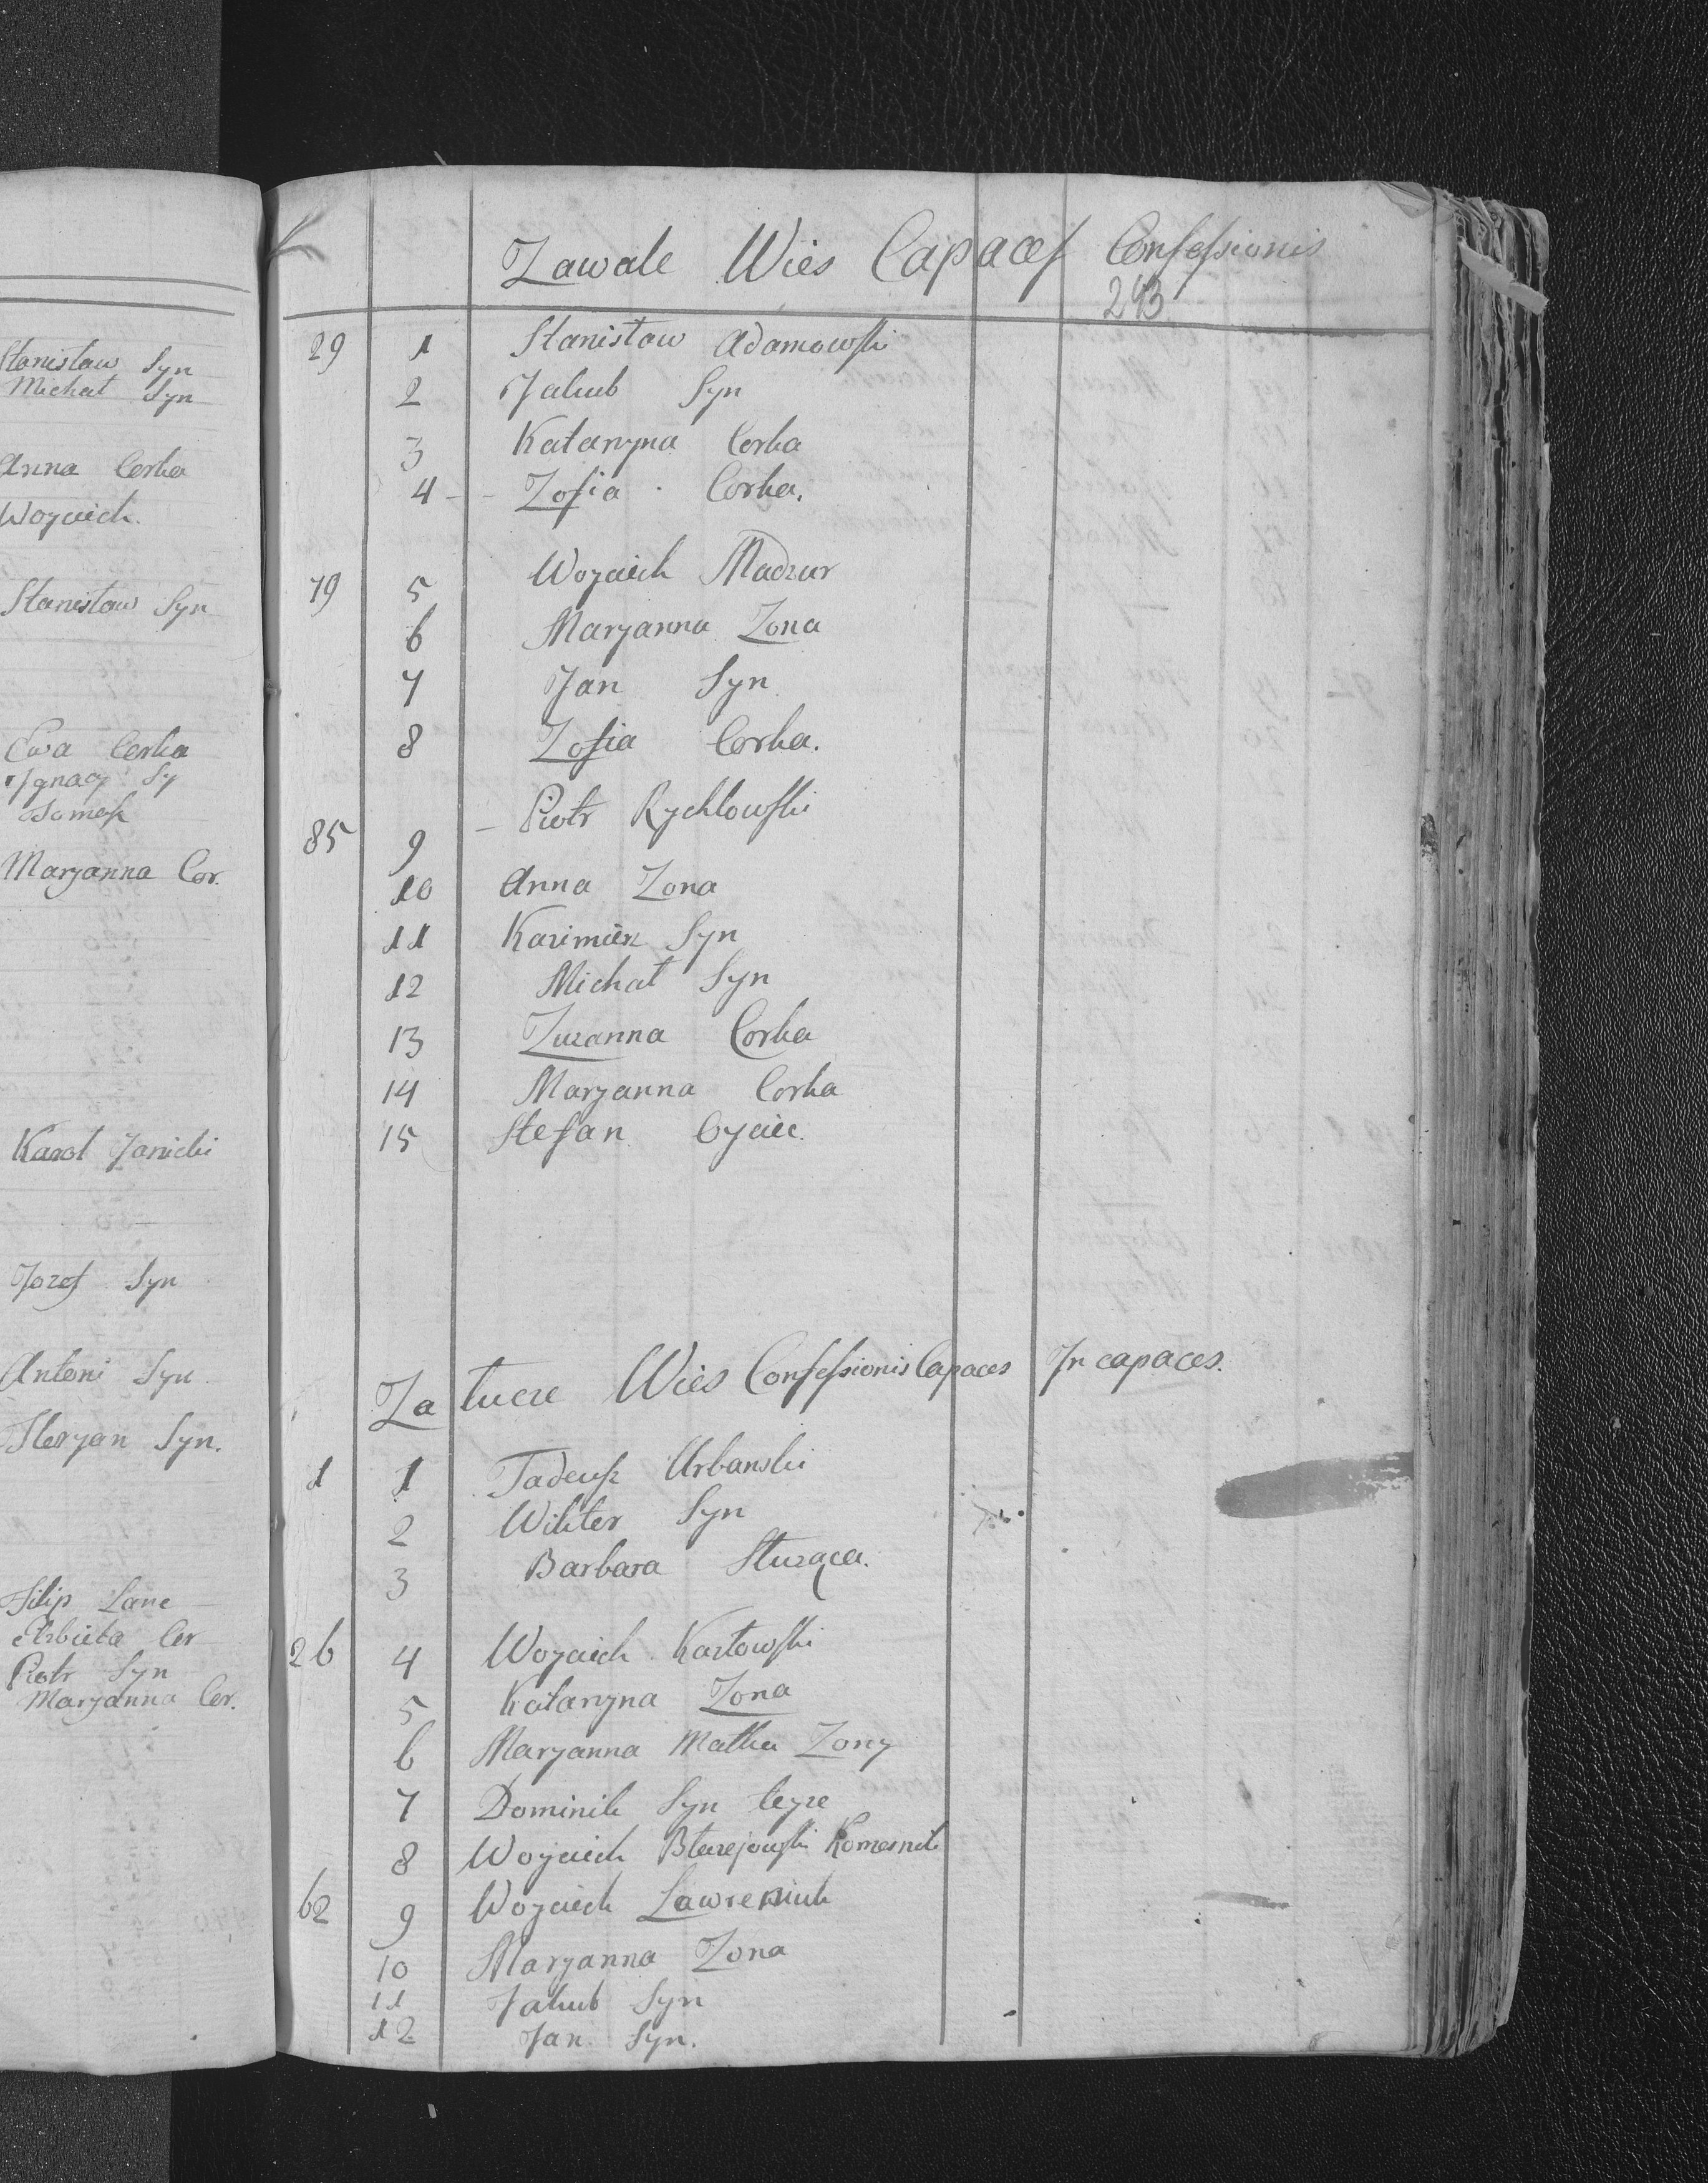 Stanisław Syn
Michał Syn
Anna Corka
Woyciech.
Stanisław Syn
Ewa Corka
Ignacy Sy
Tomasz
Maryanna Cor.
Karol Janicki
Jozef Syn
Antoni Syn
Floryan Syn.
Filip
Elzbieta Cor
Piotr Syn
Maryanna Cor.
Zawale Wies Capaces Confessionis
293
29 1 Stanisław Adamowski
2 Jakub Syn
3 Katarzyna Corka
4 - - Zofia Corka.
79 5 Woyciech Madzur
6 Maryanna Zona
7 Jan Syn
8 Zofia Corka.
85 9 - Piotr Rychlowski
10 Anna Zona
11 Kazimierz Syn
12 Michał Syn
13 Zuzanna Corka
14 Maryanna Corka
15 Stefan Oyciec.
Zatucze Wies Confessionis Capaces In capaces.
1 1 Tadeusz Urbanski
2 Wikter Syn
3 Barbara Służąca.
26 4 Woyciech Kozłowski
5 Katarzyna Zona
6 Maryanna Matka Zony
7 Dominik Syn teyze
8 Woyciech Błazejowski Komornik
62 9 Woyciech Lawreniuk
10 Maryanna Zona
11 Jakub Syn
12 Jan Syn.